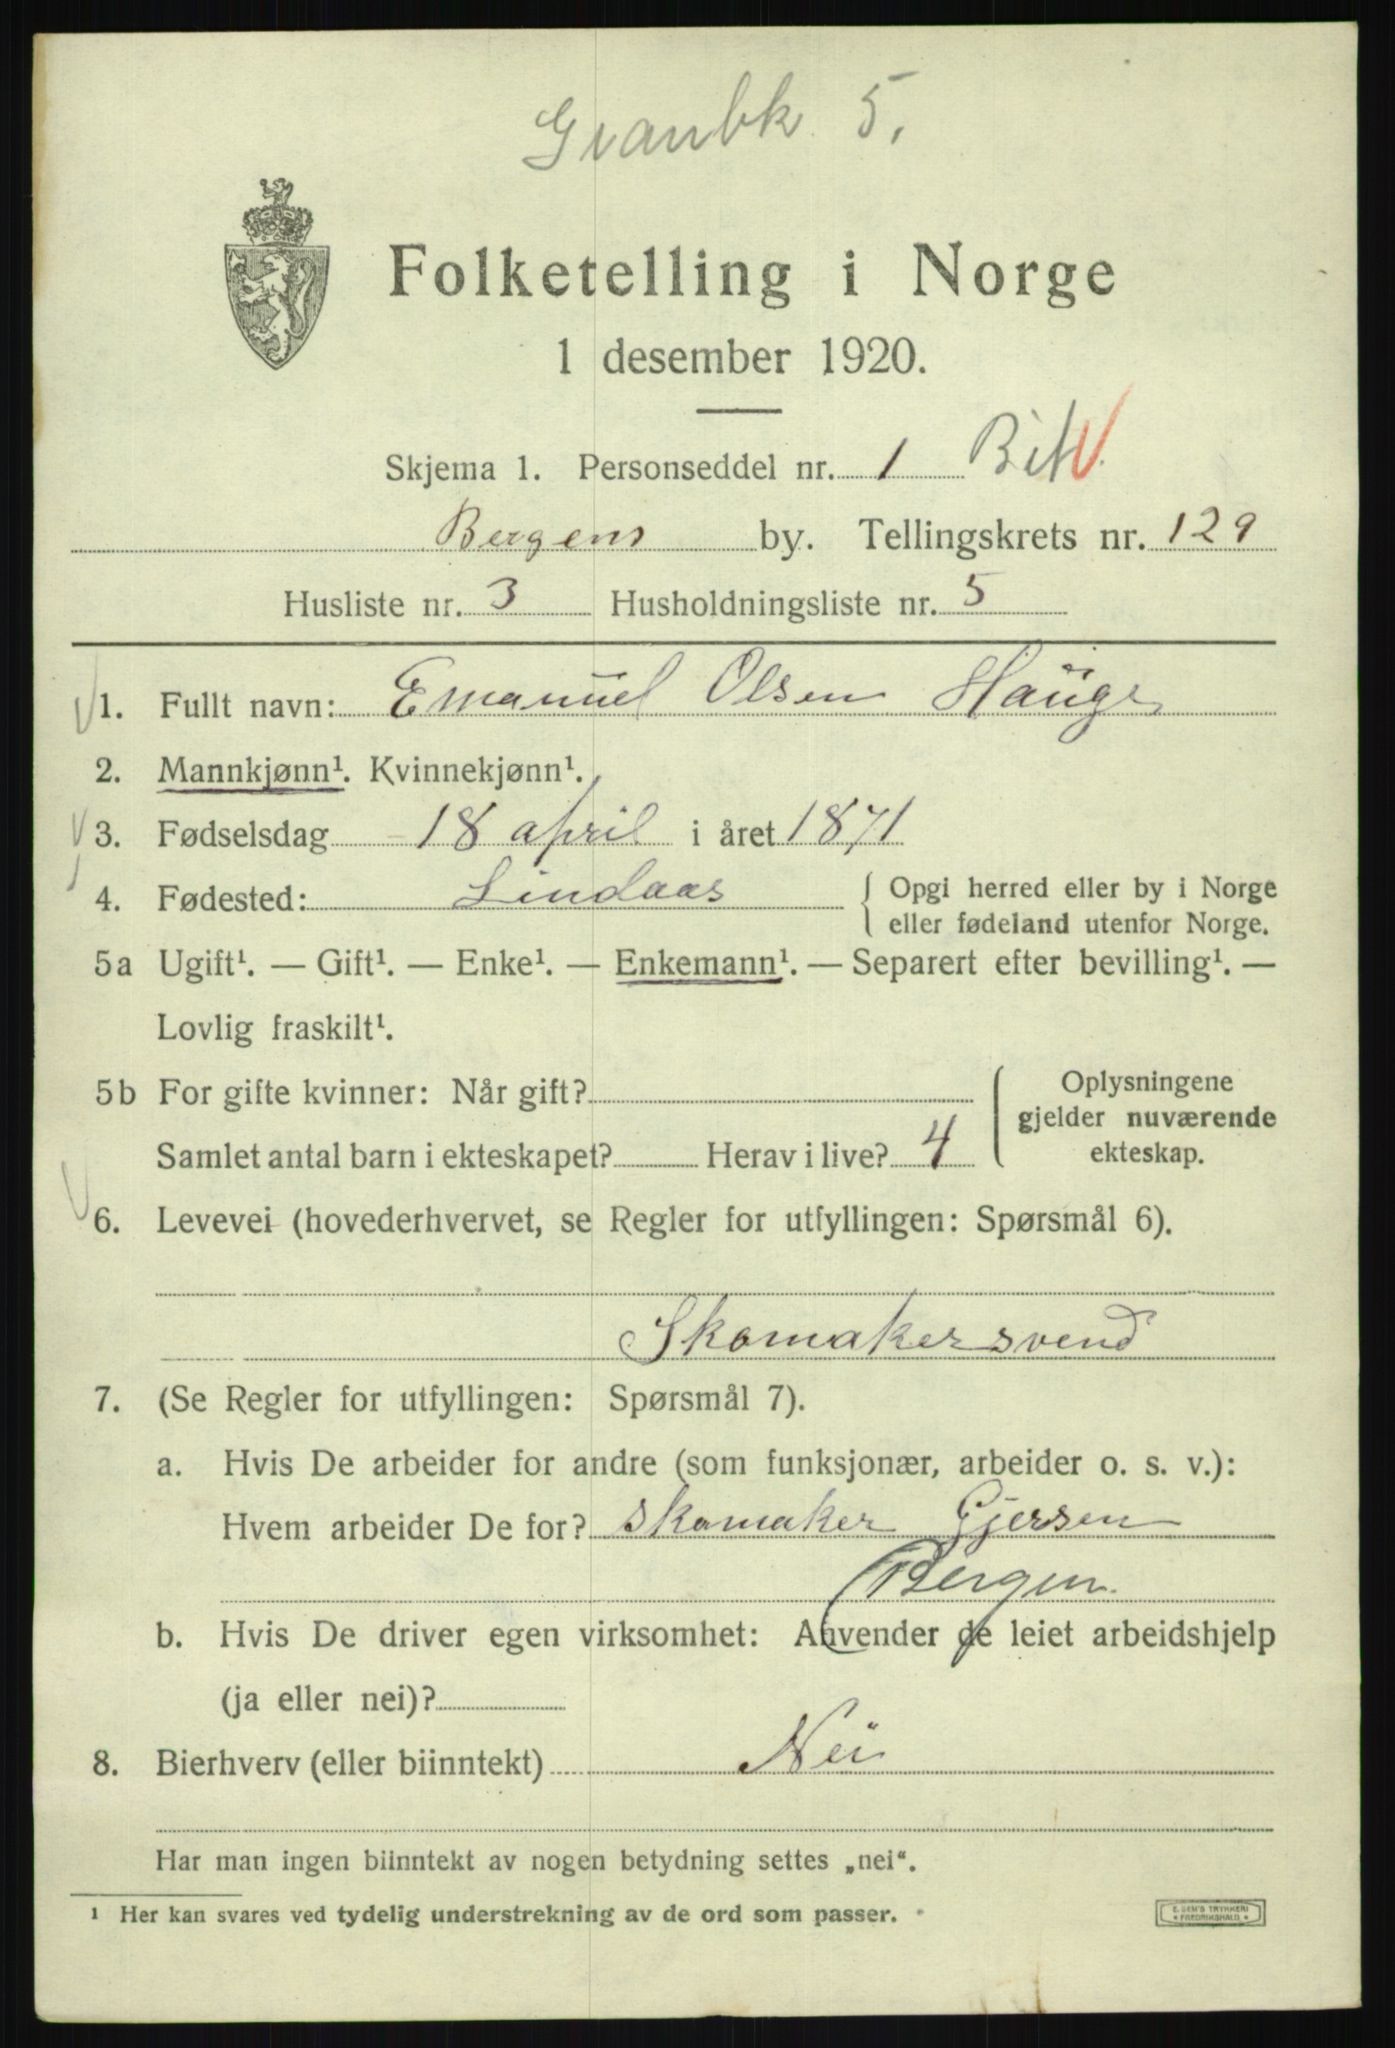 Granbk 5.
Folketelling i Norge
1 desember 1920.
Skjema 1. Personseddel nr. 1
Bergens by. Tellingskrets nr. 129
Husliste nr. 3 Husholdningsliste nr. 5
1. Fullt navn: Emanuel Olsen Hauge
2. Mannkjønn¹. Kvinnekjønn¹.
3. Fødselsdag 18 april i året 1871
4. Fødested: Lindaas { Opgi herred eller by i Norge
eller fødeland utenfor Norge.
5a Ugift¹. — Gift¹. — Enke¹. — Enkemann¹. — Separert efter bevilling¹. —
Lovlig fraskilt¹.
5b For gifte kvinner: Når gift?
Samlet antal barn i ekteskapet? Herav i live? 4
Oplysningene
gjelder nuværende
ekteskap.
6. Levevei (hovederhvervet, se Regler for utfyllingen: Spørsmål 6).
Skomakersvend
7. (Se Regler for utfyllingen: Spørsmål 7).
a. Hvis De arbeider for andre (som funksjonær, arbeider o. s. v.):
Hvem arbeider De for? skomaker Gjersen
Bergen.
b. Hvis De driver egen virksomhet: Anvender de leiet arbeidshjelp
(ja eller nei)?
8. Bierhverv (eller biinntekt) Nei
Har man ingen biinntekt av nogen betydning settes „nei“.
1 Her kan svares ved tydelig understrekning av de ord som passer.
E. SEM'S TRYKKERI
* FREDRIKSHALD *